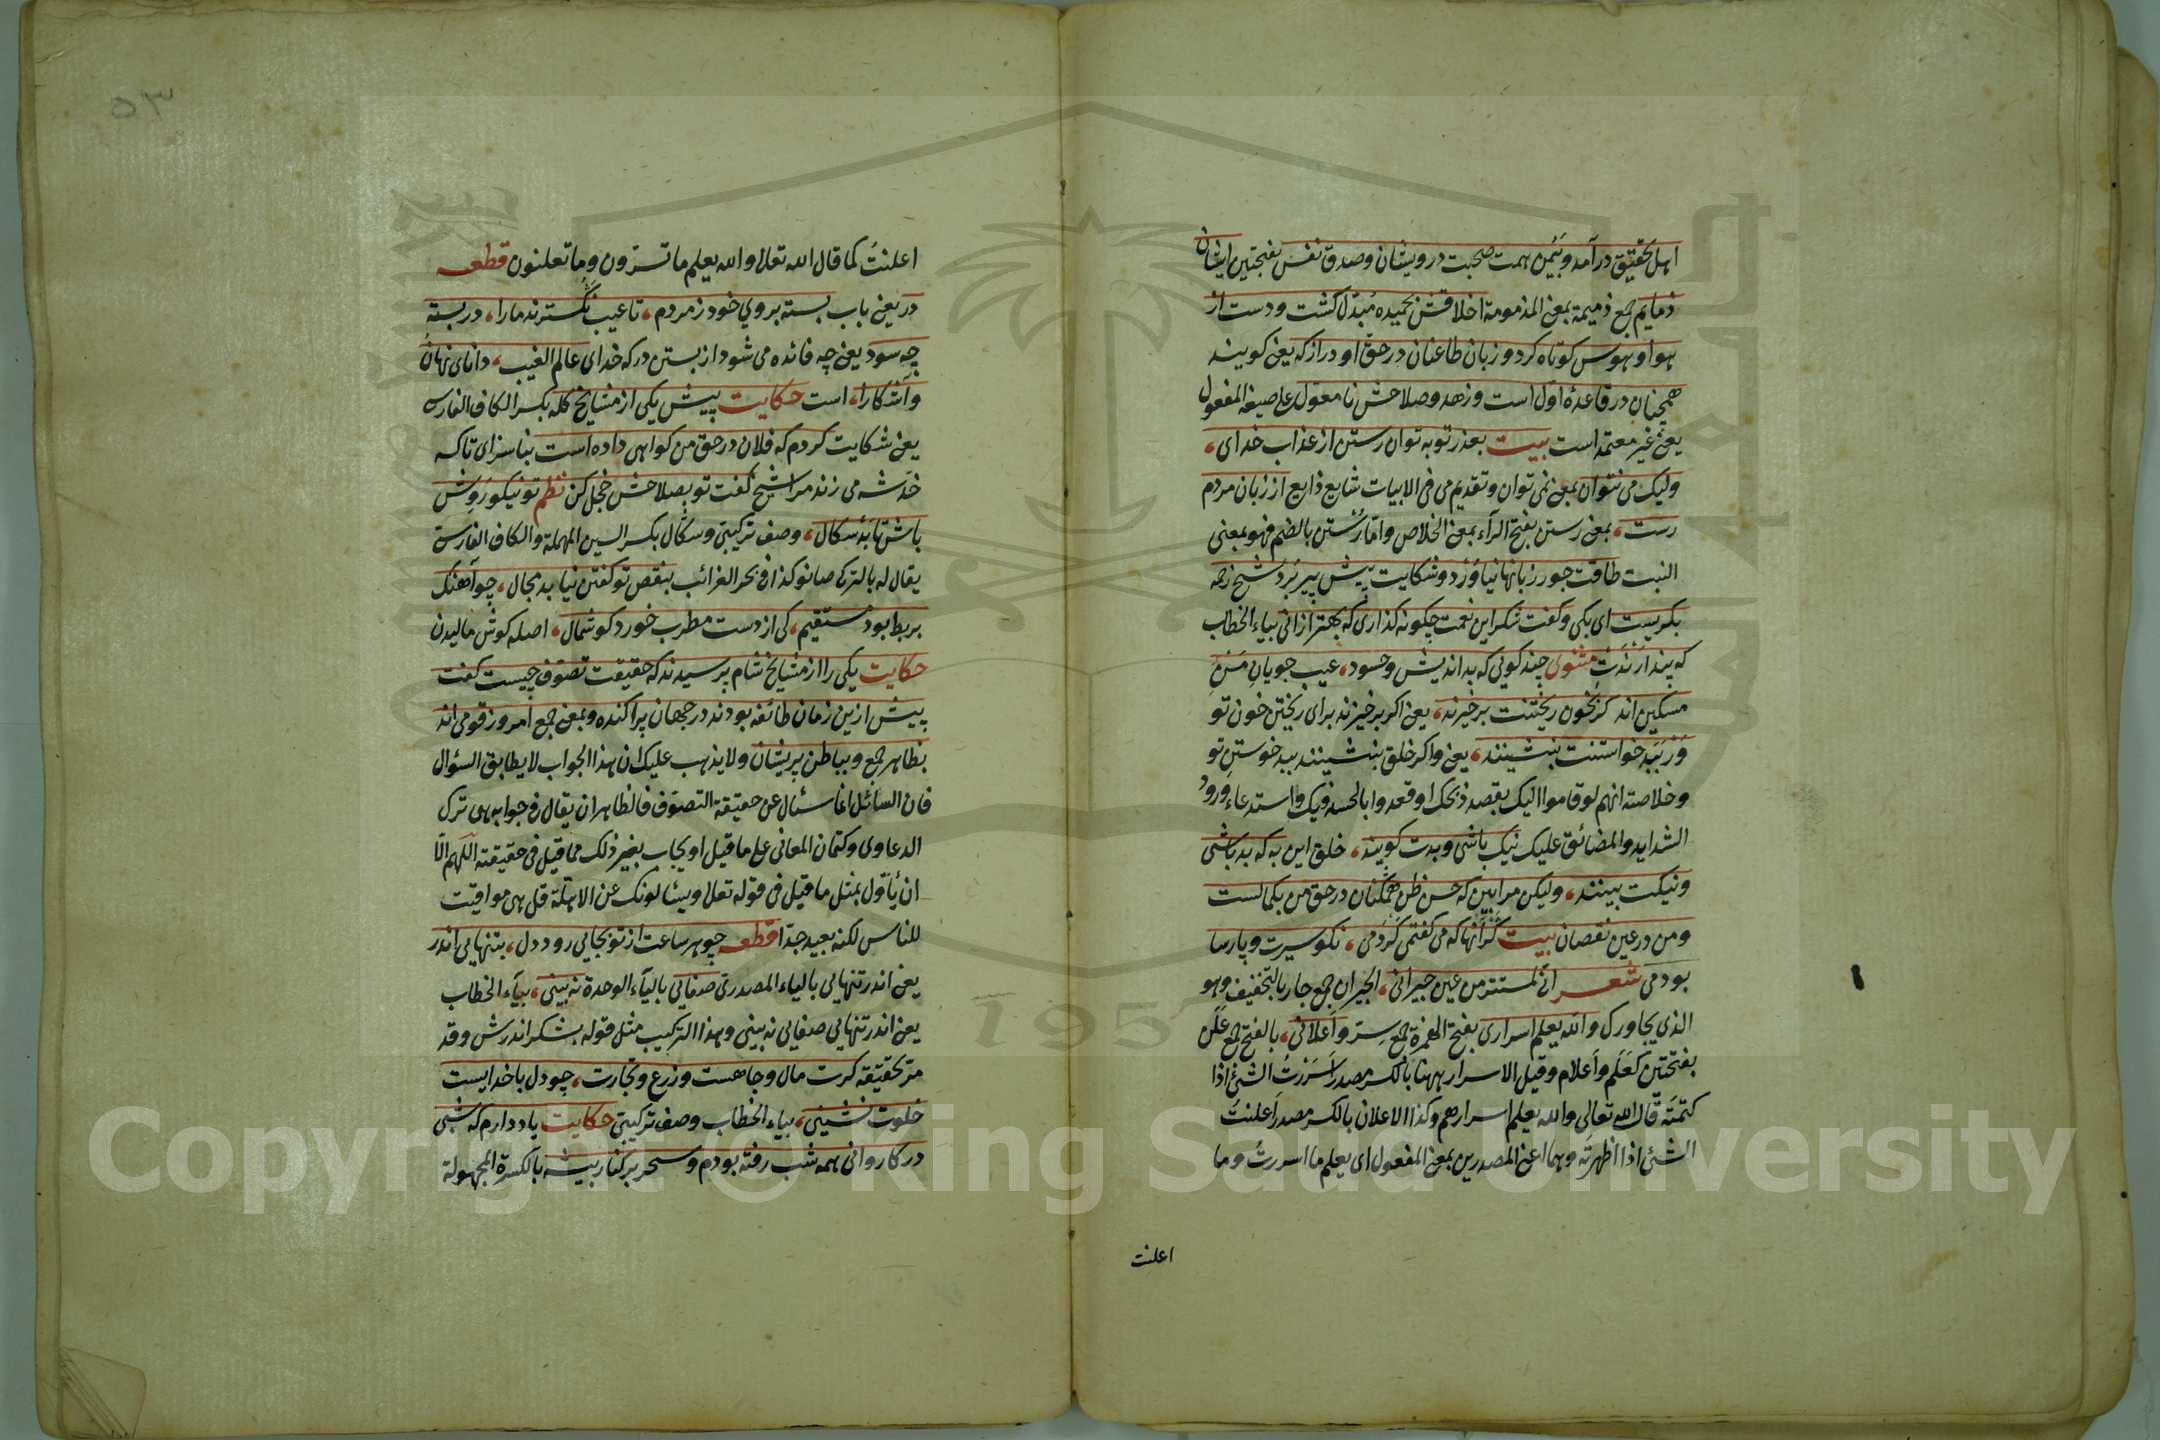 اهل تحقیق در آمد و بیمن همت صحبت درویشان وصدق نفس بفتحتین ایشان
ذمایم جمع ذمیمة بمعنی المذمومة اخلاقش بحمیده مبدل کشت ودست از
هوا و هوس کوتاه کرد و زبان طاعنان در حق او دراز که یعنی کویند
همچنان در قاعدهٔ اول است و زهد وصلاحش نا معول علی صیغه المفعول
یعنی غیر معتمد است بیت بعذر توبه توان رستن از عذاب خدای
ولیک می نتوان بمعنی نمی توان وتقدیم می فی الابیات شایع ذایع از زبان مردم
رست بمعنی رستن بفتح الرآء بمعنی الخلاص واما رُستن بالضم فهو بمعنی
النبت طاقت جور زبانها نیاوَرْد وشکایت پیش پیر بَرد شیخ زحمه
بکریست ای بکی وکفت شکر این نعمت چکونه کذاری که بهتر ازانی بیاء الخطاب
که پندارَنْدَتْ مثنوی چند کویی که بد اندیش وحسود عیب جویانِ مَنِ
مسکین اند کز بخون ریختنت برخیزند یعنی اکر برخیزند برای ریختن خون تو
وَرْ بَبَدِ خواستنت بنشینند یعنی واکر خلق بنشینند ببد خوستن تو
وخلاصته انهم لو قاموا الیک بقصد ذبحک او قعدوا بالحسد فیک واستدعاء ورود
الشداید والمضائق علیک نیک باشی وبدت کویند خلق این به که بد باشی
ونیکت بینند ولیکن مرا بین که حسن ظن همکنان در حق من بکمالست
ومن در عین نقصان بیت کر آنها که می کفتمی کردمی نکو سیرت وپارسا
بودمی شعر انی لمستتر من عین جیرانی الجیران جمع جار بالتخفیف وهو
الذی یجاورک والله یعلم اسراری بفتح الهمزة جمع سِرّ واَعلانی بالفتح جمع عَلَن
بفتحتین کعَلَم واَعلام وقیل الاسرار ههنا بالکسر مصدر اَسرَرْتُ الشئ اذا
کتمتَه قال الله تعالی والله یعلم اسرارهم وکذا الاعلان بالکسر مصدر اَعلنتُ
الشئ اذا اظهرتَه وهما اعنی المصدرین بمعنی المفعول ای یعلم ما اسررتُ وما
اعلنت
٥٣
اعلنتُ کما قال الله تعالی والله یعلم ما تسرّون وما تعلنون قطعه
در یعنی باب بسته بروی خود ز مردم تا عیب نکسترند ما را در بسته
چه سود یعنی چه فائده می شود از بستن در که خدای عالم الغیب دانای نهان
وآشکارا است حکایت پیش یکی از مشایخ کله بکسر الکاف الفارسی
یعنی شکایت کردم که فلان در حق من کواهی داده است بناسزای تا که
خدشه می زند مرا شیخ کفت تو بصلاحش خجل کن نظم تو نیکو رَوِش
باش تا بَدْ سکال وصف ترکیبی وسکال بکسر السین المهملة والکاف الفارسی
یقال له بالترکی صانو کذا فی بحر الغرائب بنقص تو کفتن نیابد مجال چو آهنک
بربط بود مستقیم کی از دست مطرب خورد کوشمال اصله کوش مالیدن
حکایت یکی را از مشایخ شام پرسیدند که حقیقت تصوف چیست کفت
پیش ازین زمان طائفه بودند در جهان پراکنده وبمعنی جمع امروز قومی اند
بظاهر جمع وبباطن پریشان ولا یذهب علیک ان هذا الجواب لا یطابق السؤال
فان السائل انما سئال عن حقیقة التصوف فالظاهر ان یقال فی جوابه هی ترک
الدعاوی وکتمان المعانی علی ما قیل او یجاب بغیر ذلک مما قیل فی حقیقته اللهم الا
ان یأوّل بمثل ما قیل فی قوله تعالی ویسئالونک عن الاهلّة قل هی مواقیت
للناس لکنه بعید جدا قطعه چو هر ساعت از تو بجایی رود دل بتنهایی اندر
یعنی اندر تنهایی بالیاء المصدری صفایی بالیآء الوحدة نه بینی بیآء الخطاب
یعنی اندر تنهایی صفایی نه بینی وهذا الترکیب مثل قوله بشکر اندرش وقد
مرّ تحقیقه کرت مال وجاهست وزرع وتجارت چو دل با خدایست
خلوت نشینی بیاء الخطاب وصف ترکیبی حکایت یاد دارم که شبی
در کاروانی همه شب رفته بودم وسحر بر کنار بیشه بالکسرة المجهولة
Copyright © King Saud University
1957